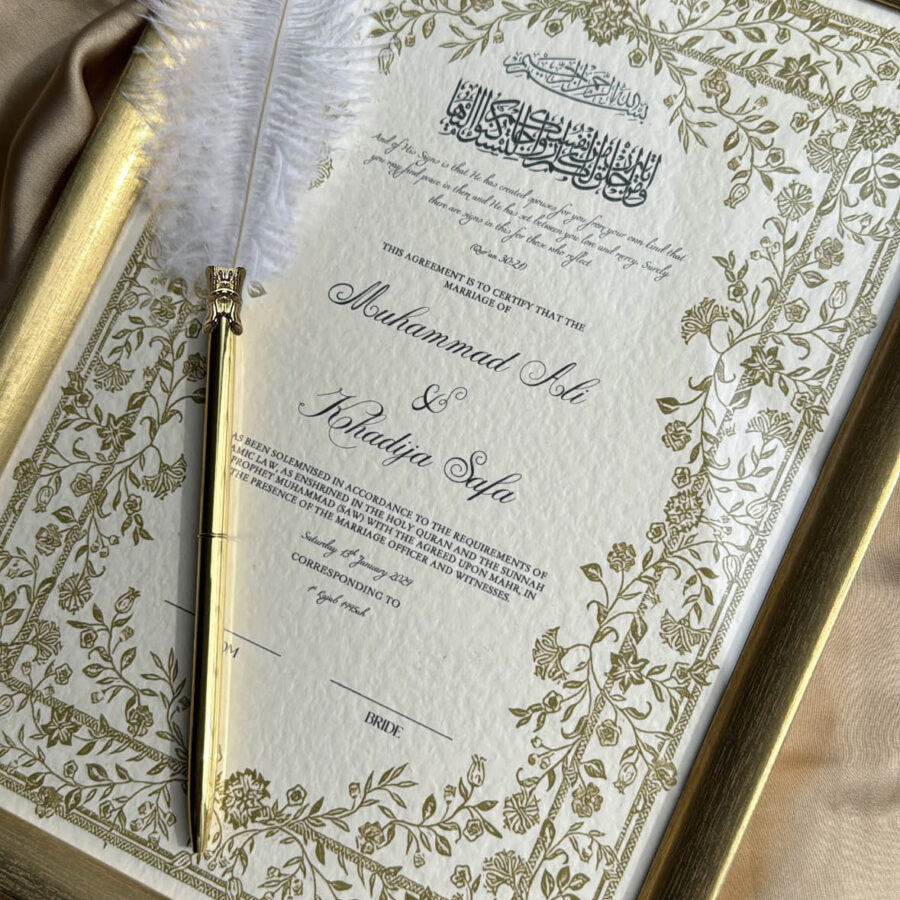 بسم الله الرحمن الرحيم
ومن آياته أن خلق لكم من أنفسكم أزواجا لتسكنوا إليها
And of His Signs is that He has created spouses for you from your own kind that
you may find peace in them and He has set between you love and mercy. Surely
there are signs in this for those who reflect
Qur'an 30:21
THIS AGREEMENT IS TO CERTIFY THAT THE
MARRIAGE OF
Muhammad Ali
&
Khadija Safa
AS BEEN SOLEMNISED IN ACCORDANCE TO THE REQUIREMENTS OF
AMIC LAW, AS ENSHRINED IN THE HOLY QURAN AND THE SUNNAH
PROPHET MUHAMMAD (SAW) WITH THE AGREED UPON MAHR, IN
THE PRESENCE OF THE MARRIAGE OFFICER AND WITNESSES.
Saturday 13th January 2024
CORRESPONDING TO
1 Rajab 1445ah
OM
BRIDE